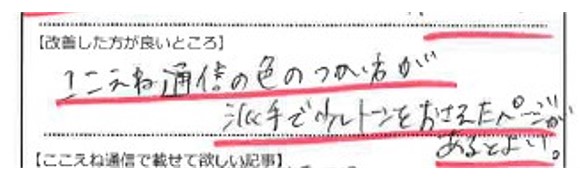 【改善した方が良いところ】
ここえね通信の色のつかい方が
派手でウルトーンをおさえたページが
あるとよい。
【ここえね通信で載せて欲しい記事】